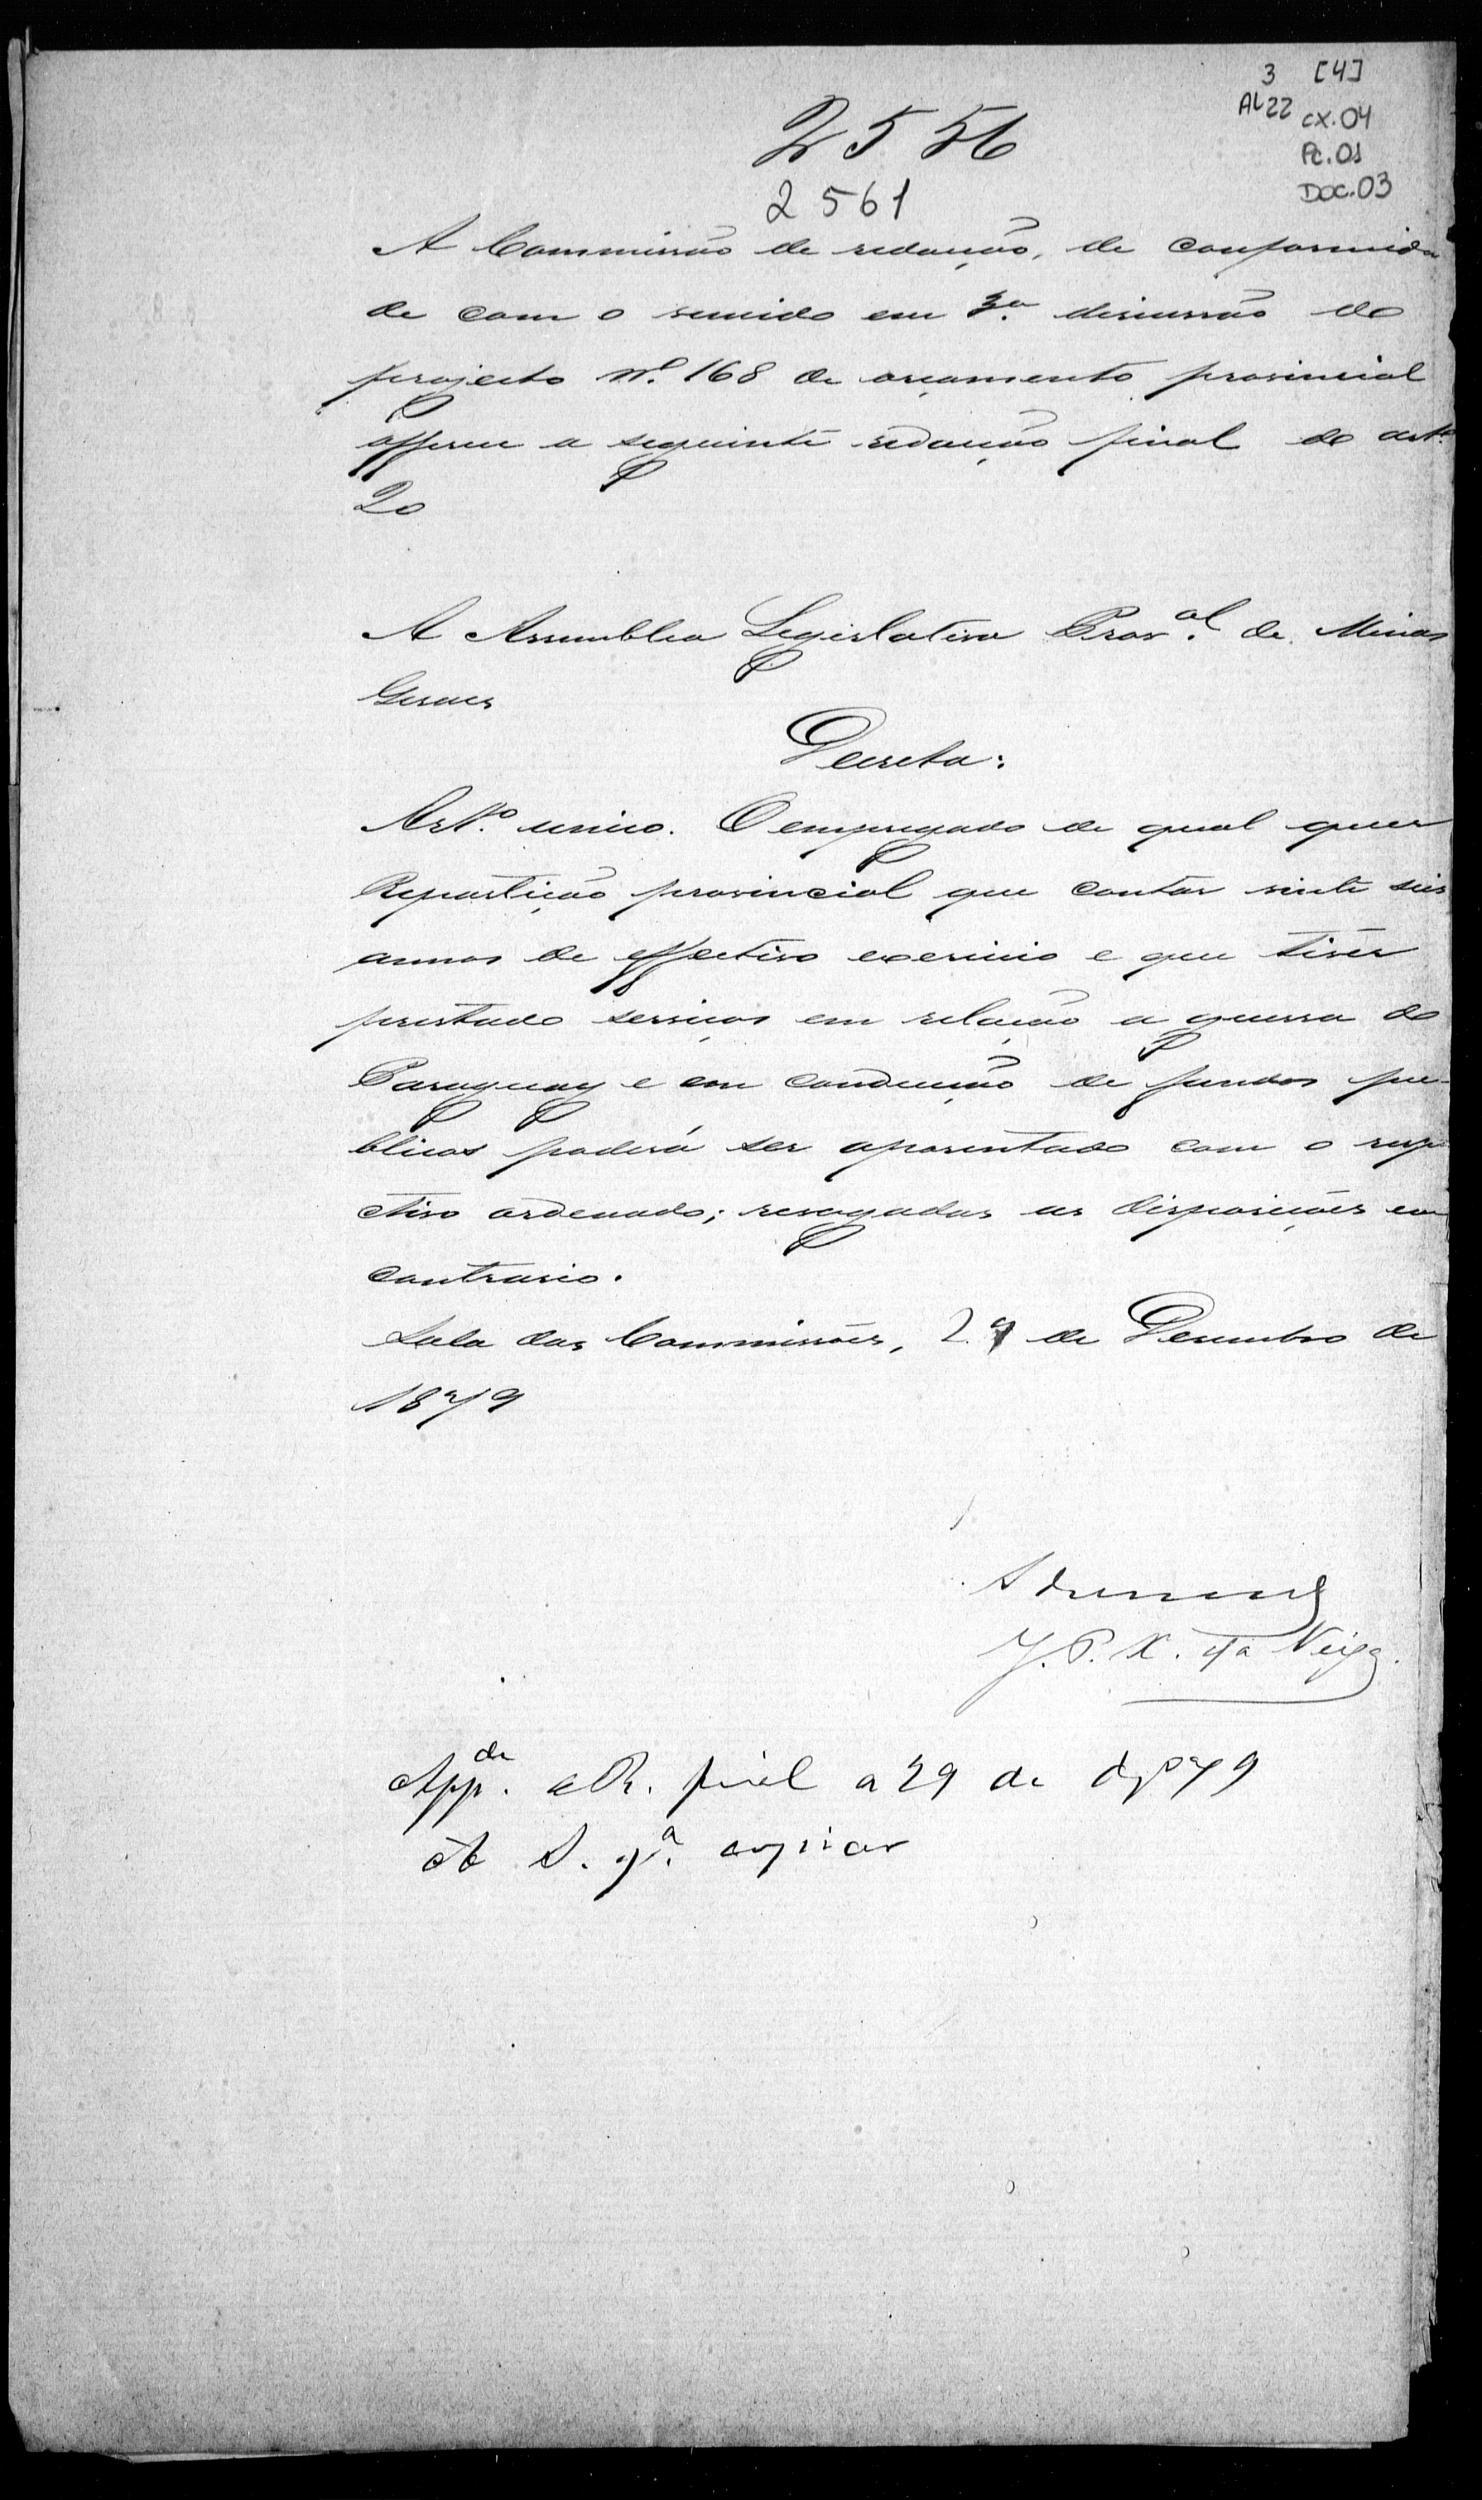 3 [4]
AL22 CX.04
Pc.01
Doc.03
2556
2561
A Commissão de redacção, de conformida
de com o vencido em 3ª. discussão do
projecto nº. 168 de orçamento provincial
offerece a seguinte redacção final do artº.
20
A Assemblea Legislativa Proval. de Minas
Geraes
Decreta:
Artº. unico. O empregado de qual quer
Repartição provincial que contar vinte seis
annos de effectivo exercicio e que tiver
prestado serviços em relação a guerra do
Paraguay e em conducção de fundos pu-
blicos poderá ser aposentado com o respe
ctivo ordenado; revogadas as disposições em
contrario.
Sala das Commissões, 29 de Desembro de
1879
J. P. X. da Veiga.
Appda. a R. final a 29 de dzº 79
A S. pª. copiar